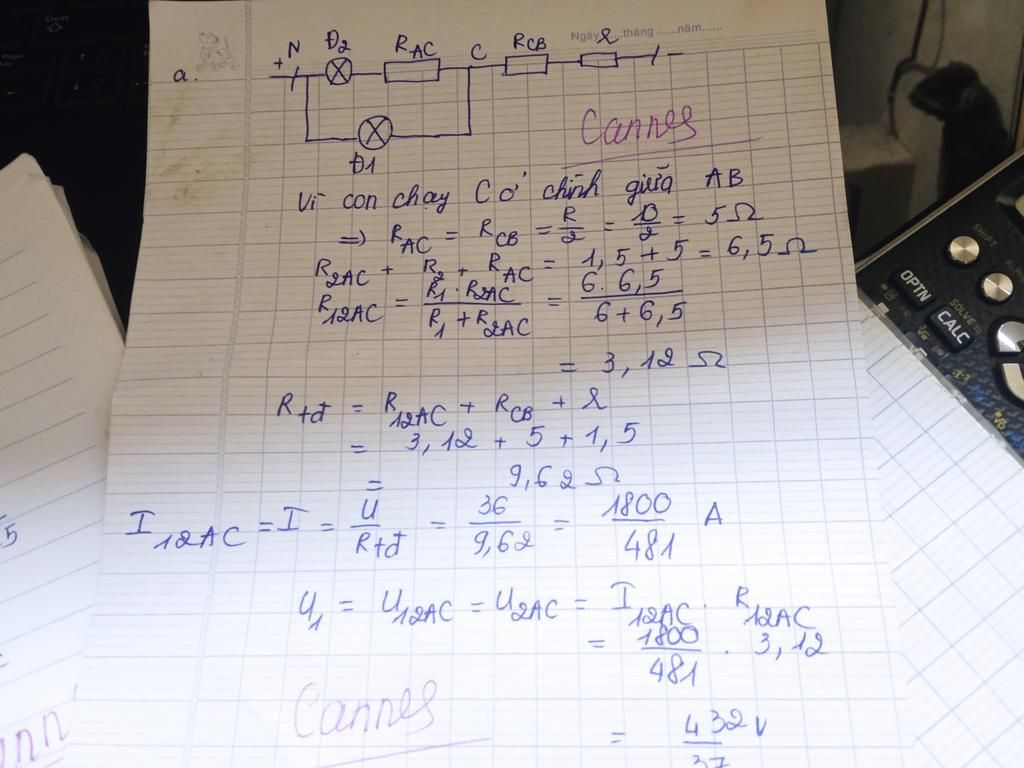 Ngày ...tháng ......năm......
a.
+ N Đ2 R_AC C R_CB r -
Đ1
Cannes
Vì con chạy C ở chính giữa AB
=> R_AC = R_CB = R/2 = 10/2 = 5 Ω
R_2AC + R_2 + R_AC = 1,5 + 5 = 6,5 Ω
R_12AC = R_1 . R_2AC / R_1 + R_2AC = 6. 6,5 / 6 + 6,5
= 3,12 Ω
R_tđ = R_12AC + R_CB + r
= 3,12 + 5 + 1,5
= 9,62 Ω
I_12AC = I = U / R_tđ = 36 / 9,62 = 1800 / 481 A
U_1 = U_12AC = U_2AC = I_12AC . R_12AC
= 1800 / 481 . 3,12
Cannes
= 432 / 37 V
SHIFT
OPTN
SOLVE
CALC